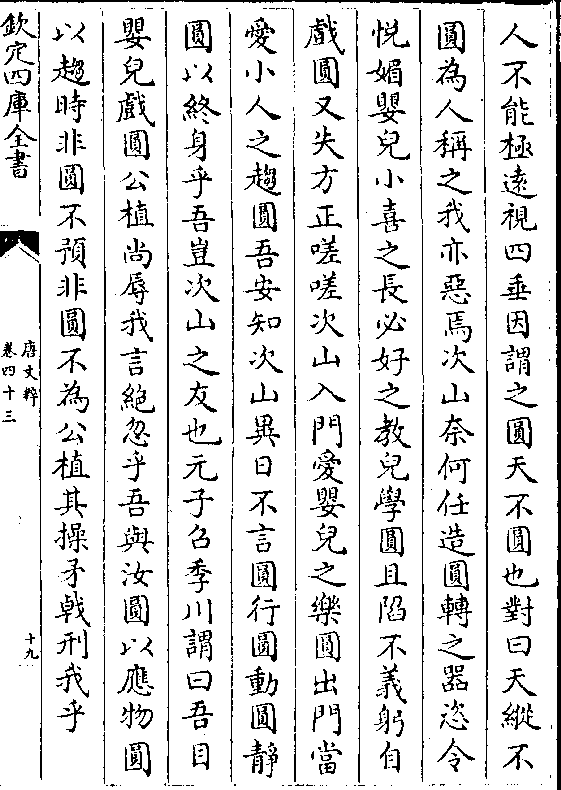 人不能極遠視四垂因謂之圓天不圓也對曰天縱不
圓為人稱之我亦惡焉次山奈何任造圓轉之器恣令
悅媚嬰兒小喜之長必好之教兒學圓且陷不義躬自
戲圓又失方正嗟嗟次山入門愛嬰兒之樂圓出門當
愛小人之趨圓吾安知次山異日不言圓行圓動圓靜
圓以終身乎吾豈次山之友也元子召季川謂曰吾自
嬰兒戲圓公植尚辱我言絶忽乎吾與汝圓以應物圓
以趨時非圓不預非圓不為公植其操矛戟刑我乎
欽定四庫全書
唐文粹
卷四十三
十九